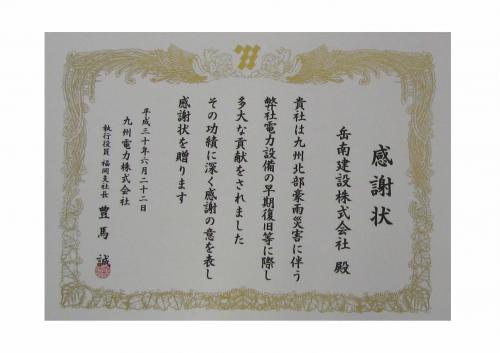 感謝状
岳南建設株式会社 殿
貴社は九州北部豪雨災害に伴う
弊社電力設備の早期復旧等に際し
多大な貢献をされました
その功績に深く感謝の意を表し
感謝状を贈ります
平成三十年六月二十二日
九州電力株式会社
執行役員 福岡支社長 豊馬 誠